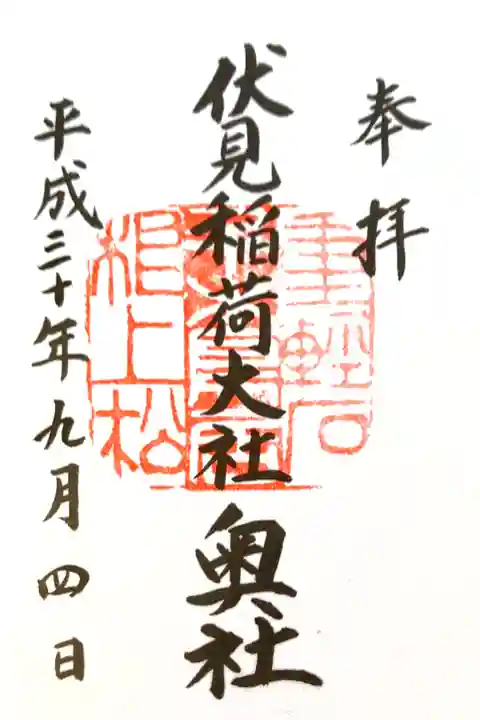 奉拝
伏見稲荷大社 奥社
平成三十年九月四日
重軽石
根上松